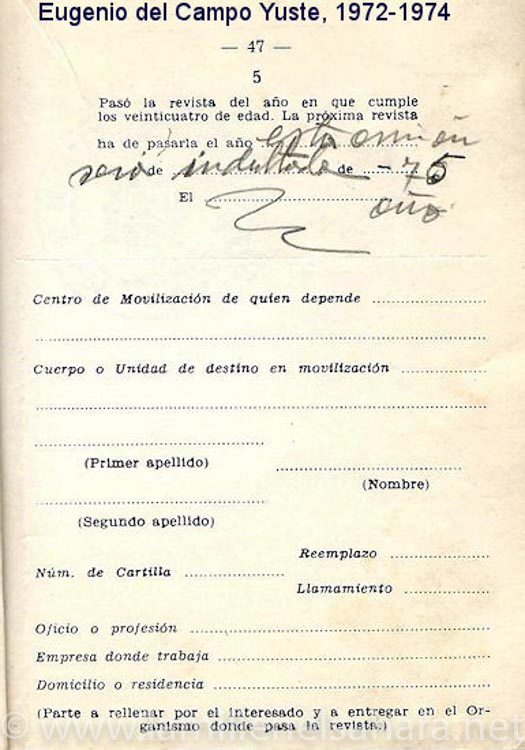 Eugenio del Campo Yuste, 1972-1974
— 47 —
5
Pasó la revista del año en que cumple
los veinticuatro de edad. La próxima revista
ha de pasarla el año esta
será de indultada de - 75
El año
Centro de Movilización de quien depende
Cuerpo o Unidad de destino en movilización
(Primer apellido)
(Nombre)
(Segundo apellido)
Reemplazo
Núm. de Cartilla
Llamamiento
Oficio o profesión
Empresa donde trabaja
Domicilio o residencia
(Parte a rellenar por el interesado y a entregar en el Or-
ganismo donde pasa la revista.)